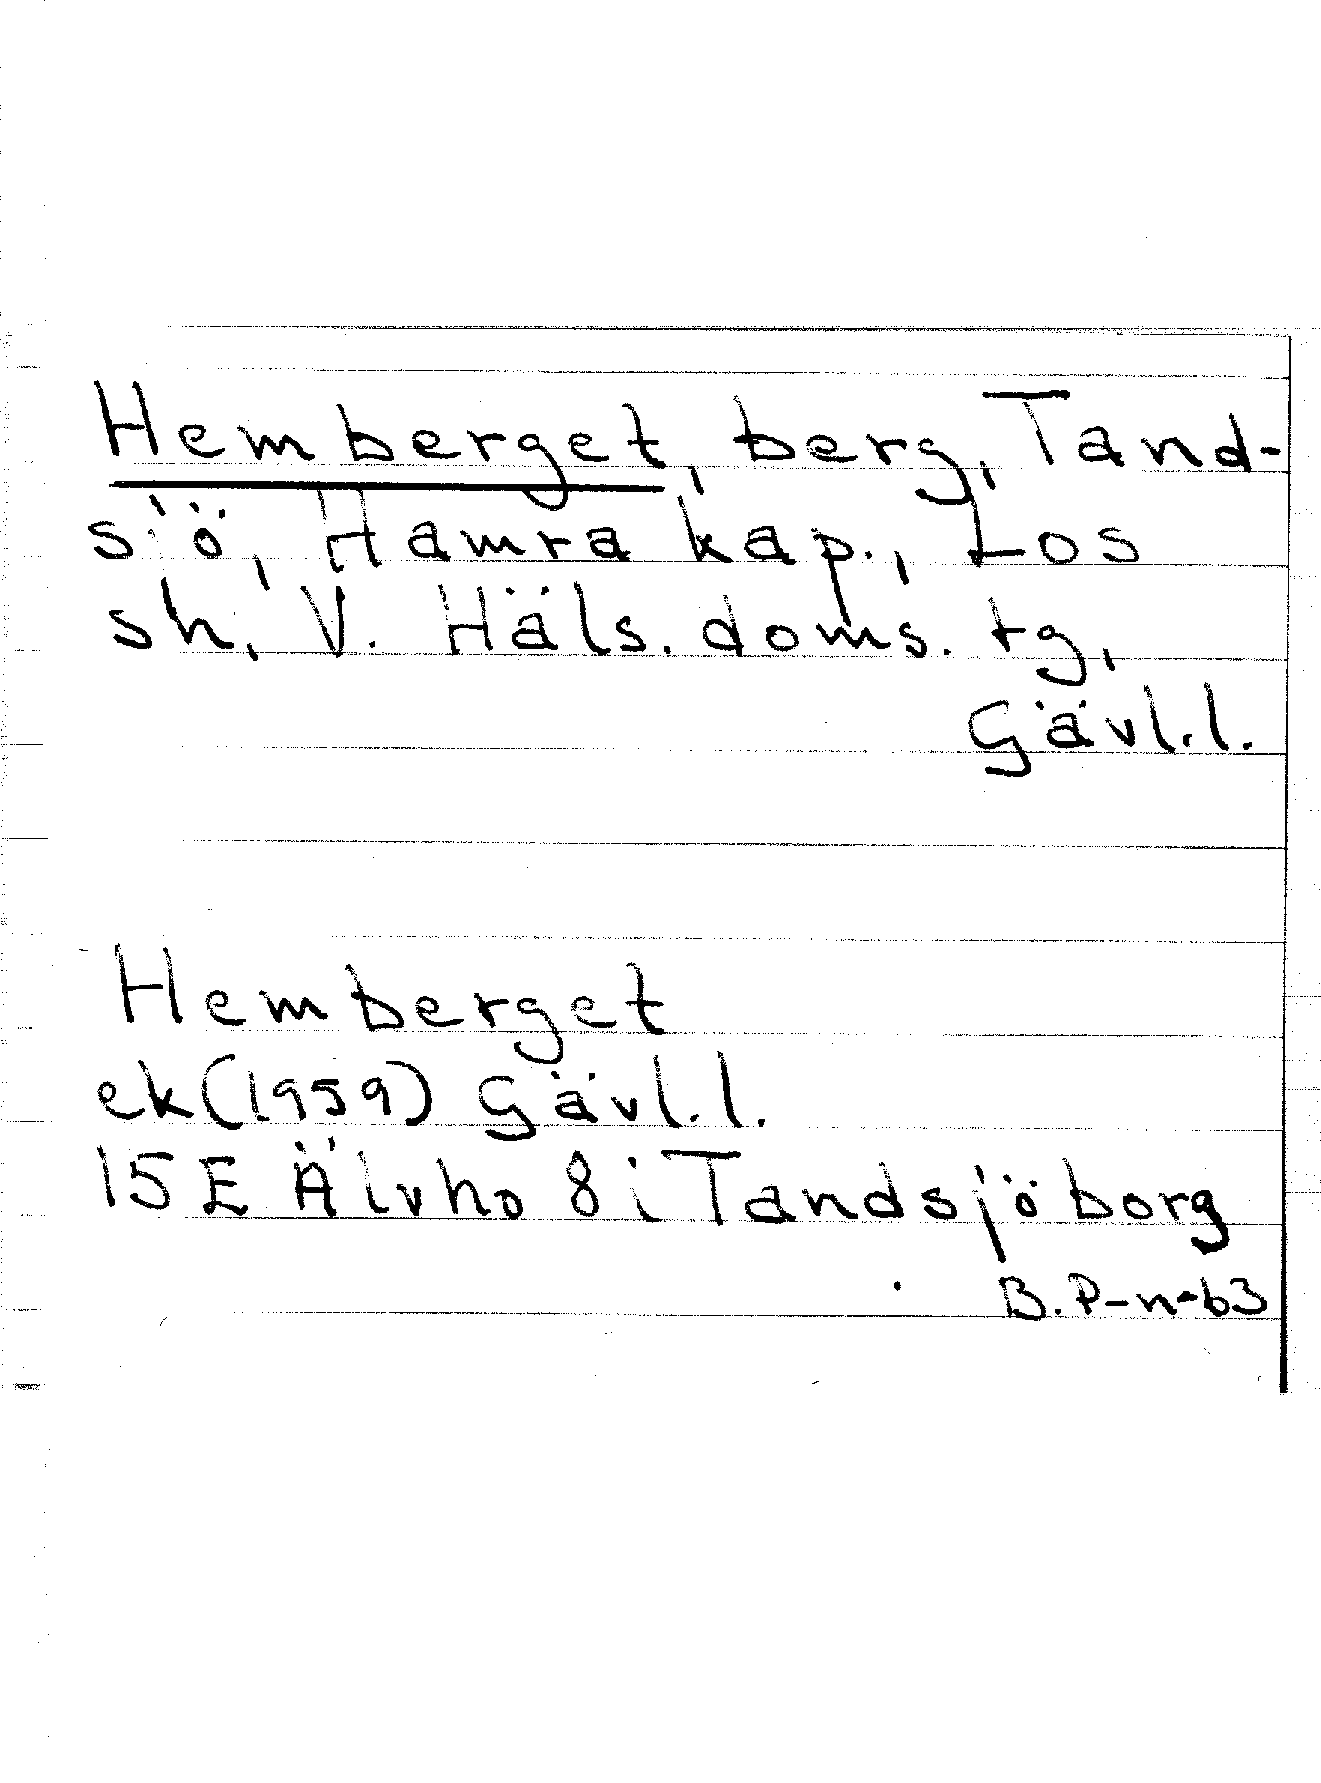 Hemberget, berg, Tand-
sjö, Hamra kap., Los
sh, V. Häls. doms. tg,
Gävl.l.
Hemberget
ek(1959) Gävl.l.
15E Älvho 8i Tandsjöborg
B.P-n-63